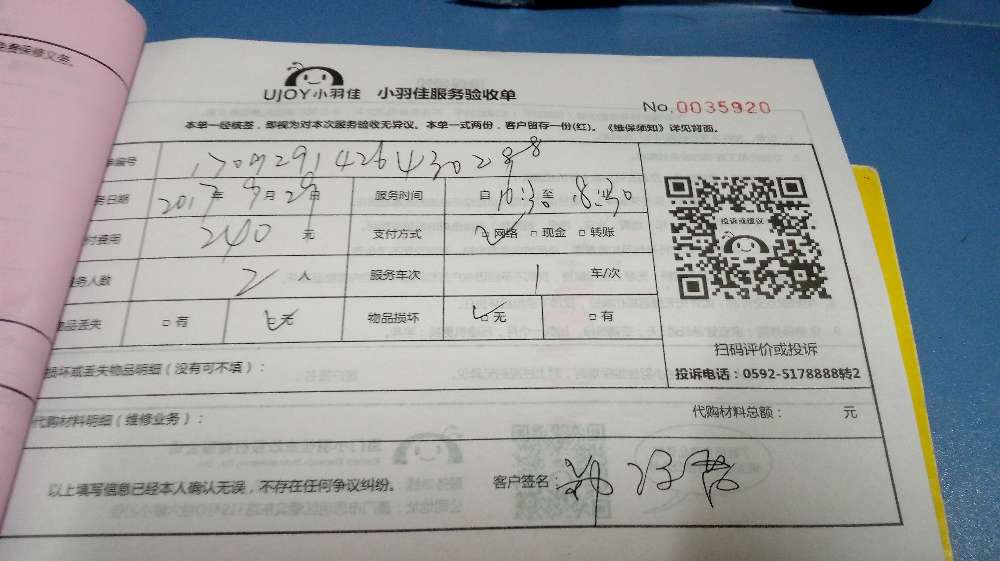 免费保修义务。
UJOY小羽佳 小羽佳服务验收单
No.0035920
本单一经核签，即视为对本次服务验收无异议。本单一式两份，客户留存一份(红)。《维保须知》详见背面。
编号
日期 2017年9月29日 服务时间 自10:30至18:30
投诉或建议
付费用 240元 支付方式 网络 □现金 □转账
务人数 2人 服务车次 1 车/次
物品丢失 □有 无 物品损坏 无 □有
扫码评价或投诉
投诉电话：0592-5178888转2
损坏或丢失物品明细（没有可不填）：
代购材料明细（维修业务）： 代购材料总额： 元
以上填写信息已经本人确认无误，不存在任何争议纠纷。 客户签名：